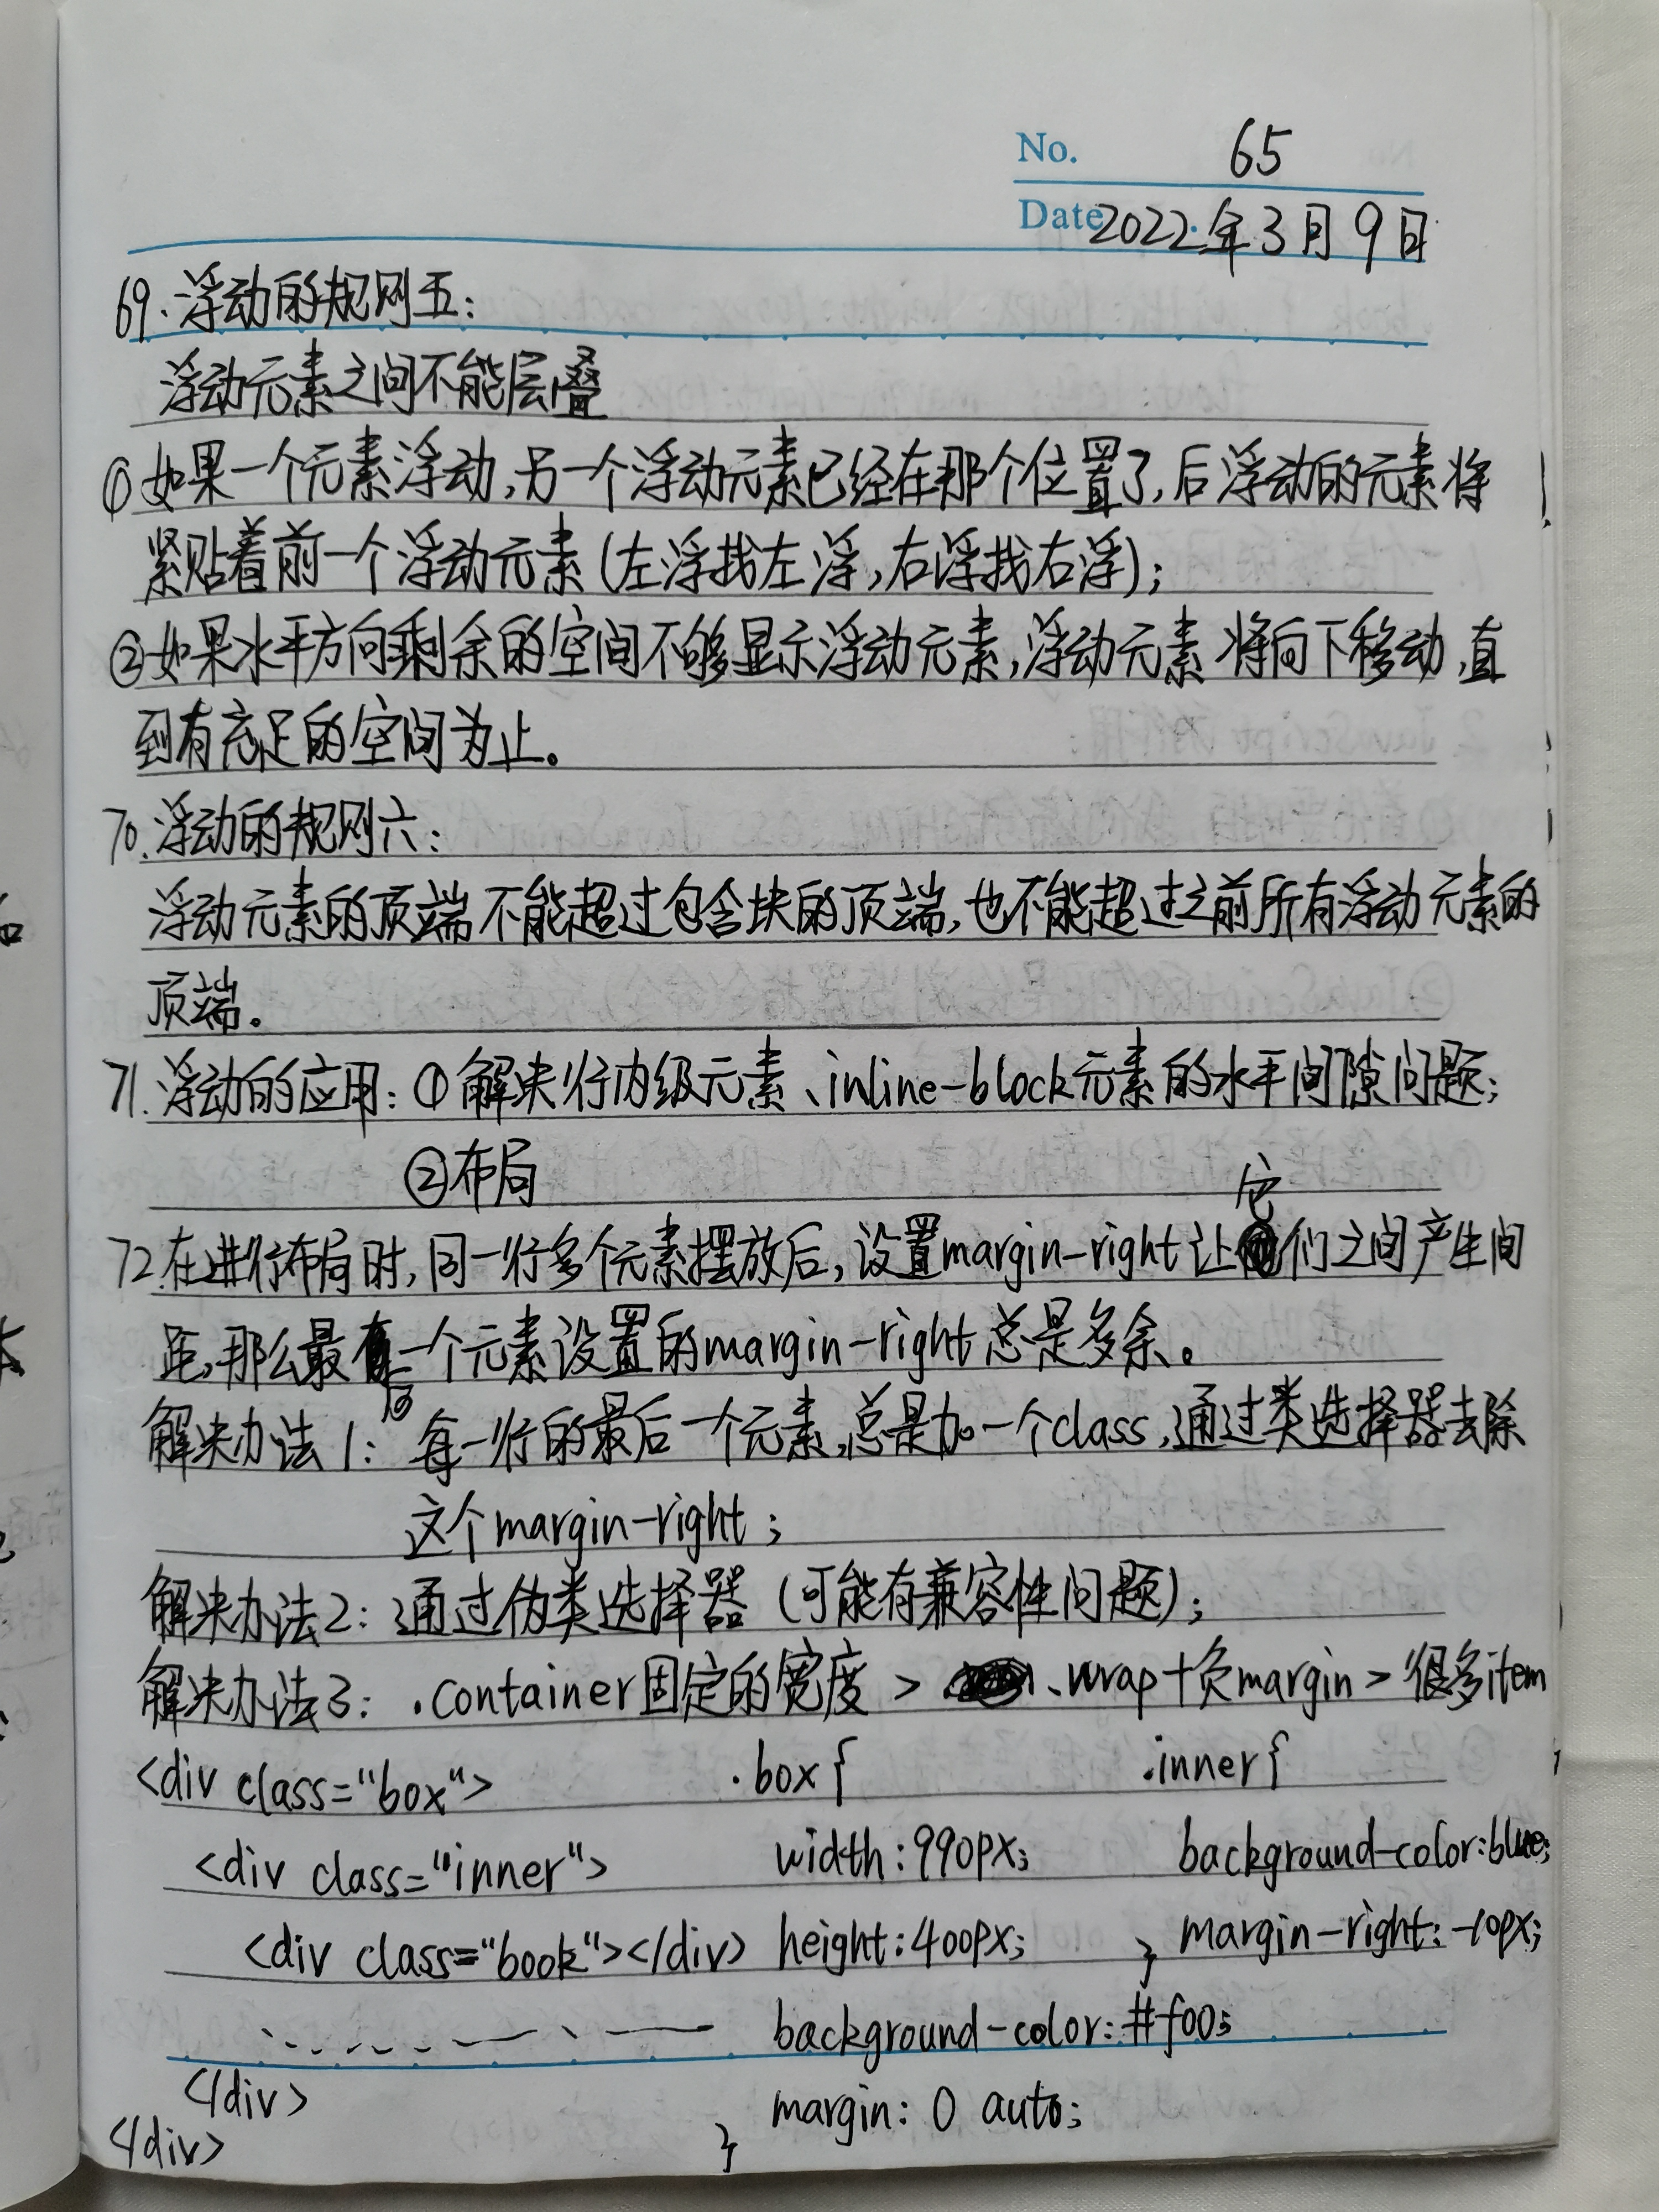 No. 65
Date 2022.年3月9日
69.浮动的规则五:
浮动元素之间不能层叠
①如果一个元素浮动,另一个浮动元素已经在那个位置了,后浮动的元素将
紧贴着前一个浮动元素(左浮找左浮,右浮找右浮);
②如果水平方向剩余的空间不够显示浮动元素,浮动元素将向下移动,直
到有充足的空间为止。
70.浮动的规则六:
浮动元素的顶端不能超过包含块的顶端,也不能超过之前所有浮动元素的
顶端。
71.浮动的应用:①解决行内级元素、inline-block元素的水平间隙问题;
②布局
72.在进行布局时,同一行多个元素摆放后,设置margin-right让它们之间产生间
距,那么最后一个元素设置的margin-right总是多余。
解决办法1:每一行的最后一个元素,总是加一个class,通过类选择器去除
这个margin-right;
解决办法2:通过伪类选择器(可能有兼容性问题);
解决办法3:.container固定的宽度>.wrap+负margin>很多item
<div class="box"> .box{ .inner{
<div class="inner"> width:990px; background-color:blue;
<div class="book"></div> height:400px; margin-right:-10px; }
background-color:#f00;
</div> margin: 0 auto;
</div> }